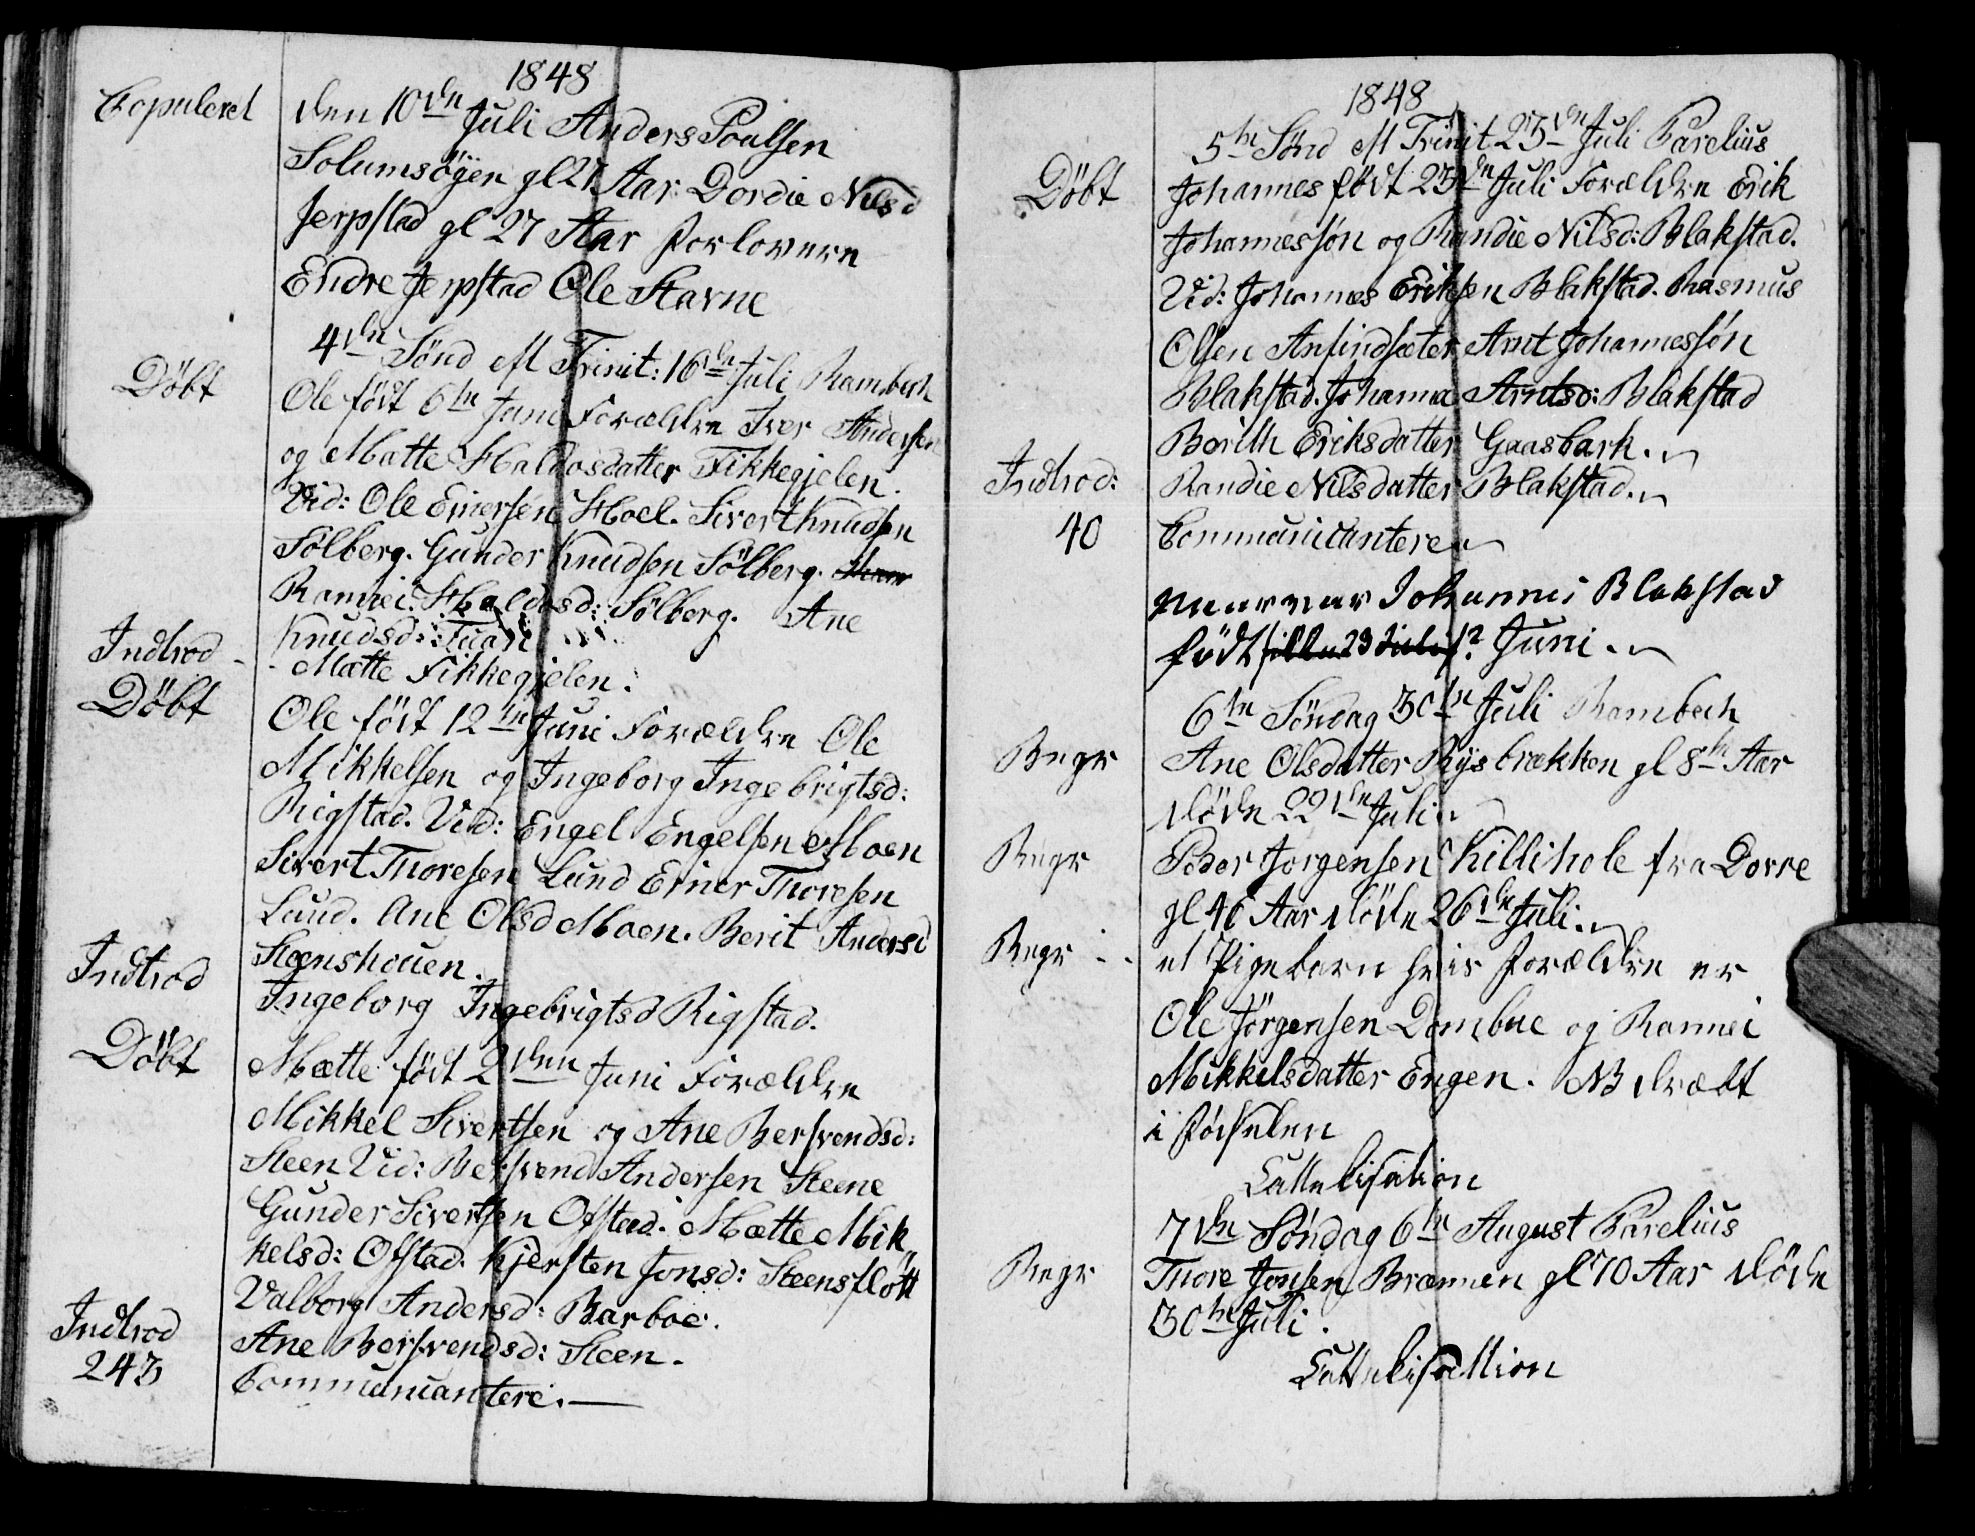 1848
Copuleret den 10de Juli Anders Poulsen
Solumsöyen gl 27 Aar. Dordie Nilsd
Jerpstad gl 27 Aar Forlovere
Endre Jerpstad Ole Stavne
4de Sönd eft Trinit: 16de Juli Rambech
Döbt Ole födt 6te Juni Forældre Iver Andersen
og Mætte Haldosdatter Fikkegjelen.
Vid: Ole Einersen Hoel. Sivert Knudsen
Sölberg. Gunder Knudsen Sölberg.
Rannei Haldosd: Sölberg. Ane
Knudsd: Tuan
Indtrod - Mætte Fikkegjelen.
Döbt Ole födt 12te Juni Forældre Ole
Mikkelsen og Ingeborg Ingebrigtsd:
Rigstad. Vid: Engel Engelsen Moen
Sivert Thoresen Lund Einer Thoresen
Lund. Ane Olsd Moen. Berit Andersd
Steenshouen.
Indtrod Ingeborg Ingebrigtsd Rigstad.
Döbt Mætte födt 2den Juni Forældre
Mikkel Sivertsen og Ane Bersvendsd:
Steen Vid: Bersvend Andersen Steene
Gunder Sivertsen Ofstad. Mætte Mik
kelsd: Ofstad. Kjersten Jonsd: Steensflött
Valborg Andersd: Barboe.
Indtrod Ane Bersvendsd: Steen.
243 Communicantere.
1848
5te Sönd eft Trinit 23de Juli Parelius
Döbt Johannes födt 23de Juli Forældre Erik
Johannessön og Randie Nilsd: Blakstad.
Vid: Johannes Eriksen Blakstad. Rasmus
Olsen Anfindsæter Arnt Johannessön
Blakstad. Johanna Arntsd: Blakstad
Berith Eriksdatter Gaasbark.
Indtrod: Randie Nilsdatter Blakstad.
40 Communicantere
Johannes Blakstad
födt 23 Juli? Juni.
6te Söndag 30te Juli Rambech
Begr Ane Olsdatter Rysbrækken gl 8te Aar
döde 22de Juli
Begr Peder Jorgensen Killihole fra Dovre
gl 46 Aar döde 26de Juli.
Begr et Pigebarn hvis Forældre er
Ole Jörgensen Dombue og Rannei
Mikkelsdatter Engen. NB dræbt
i Födselen
Cattekisation
7de Söndag 6te August Parelius
Begr Thore Jonsen Brænnen gl 70 Aar döde
30te Juli.
Cattekisattion